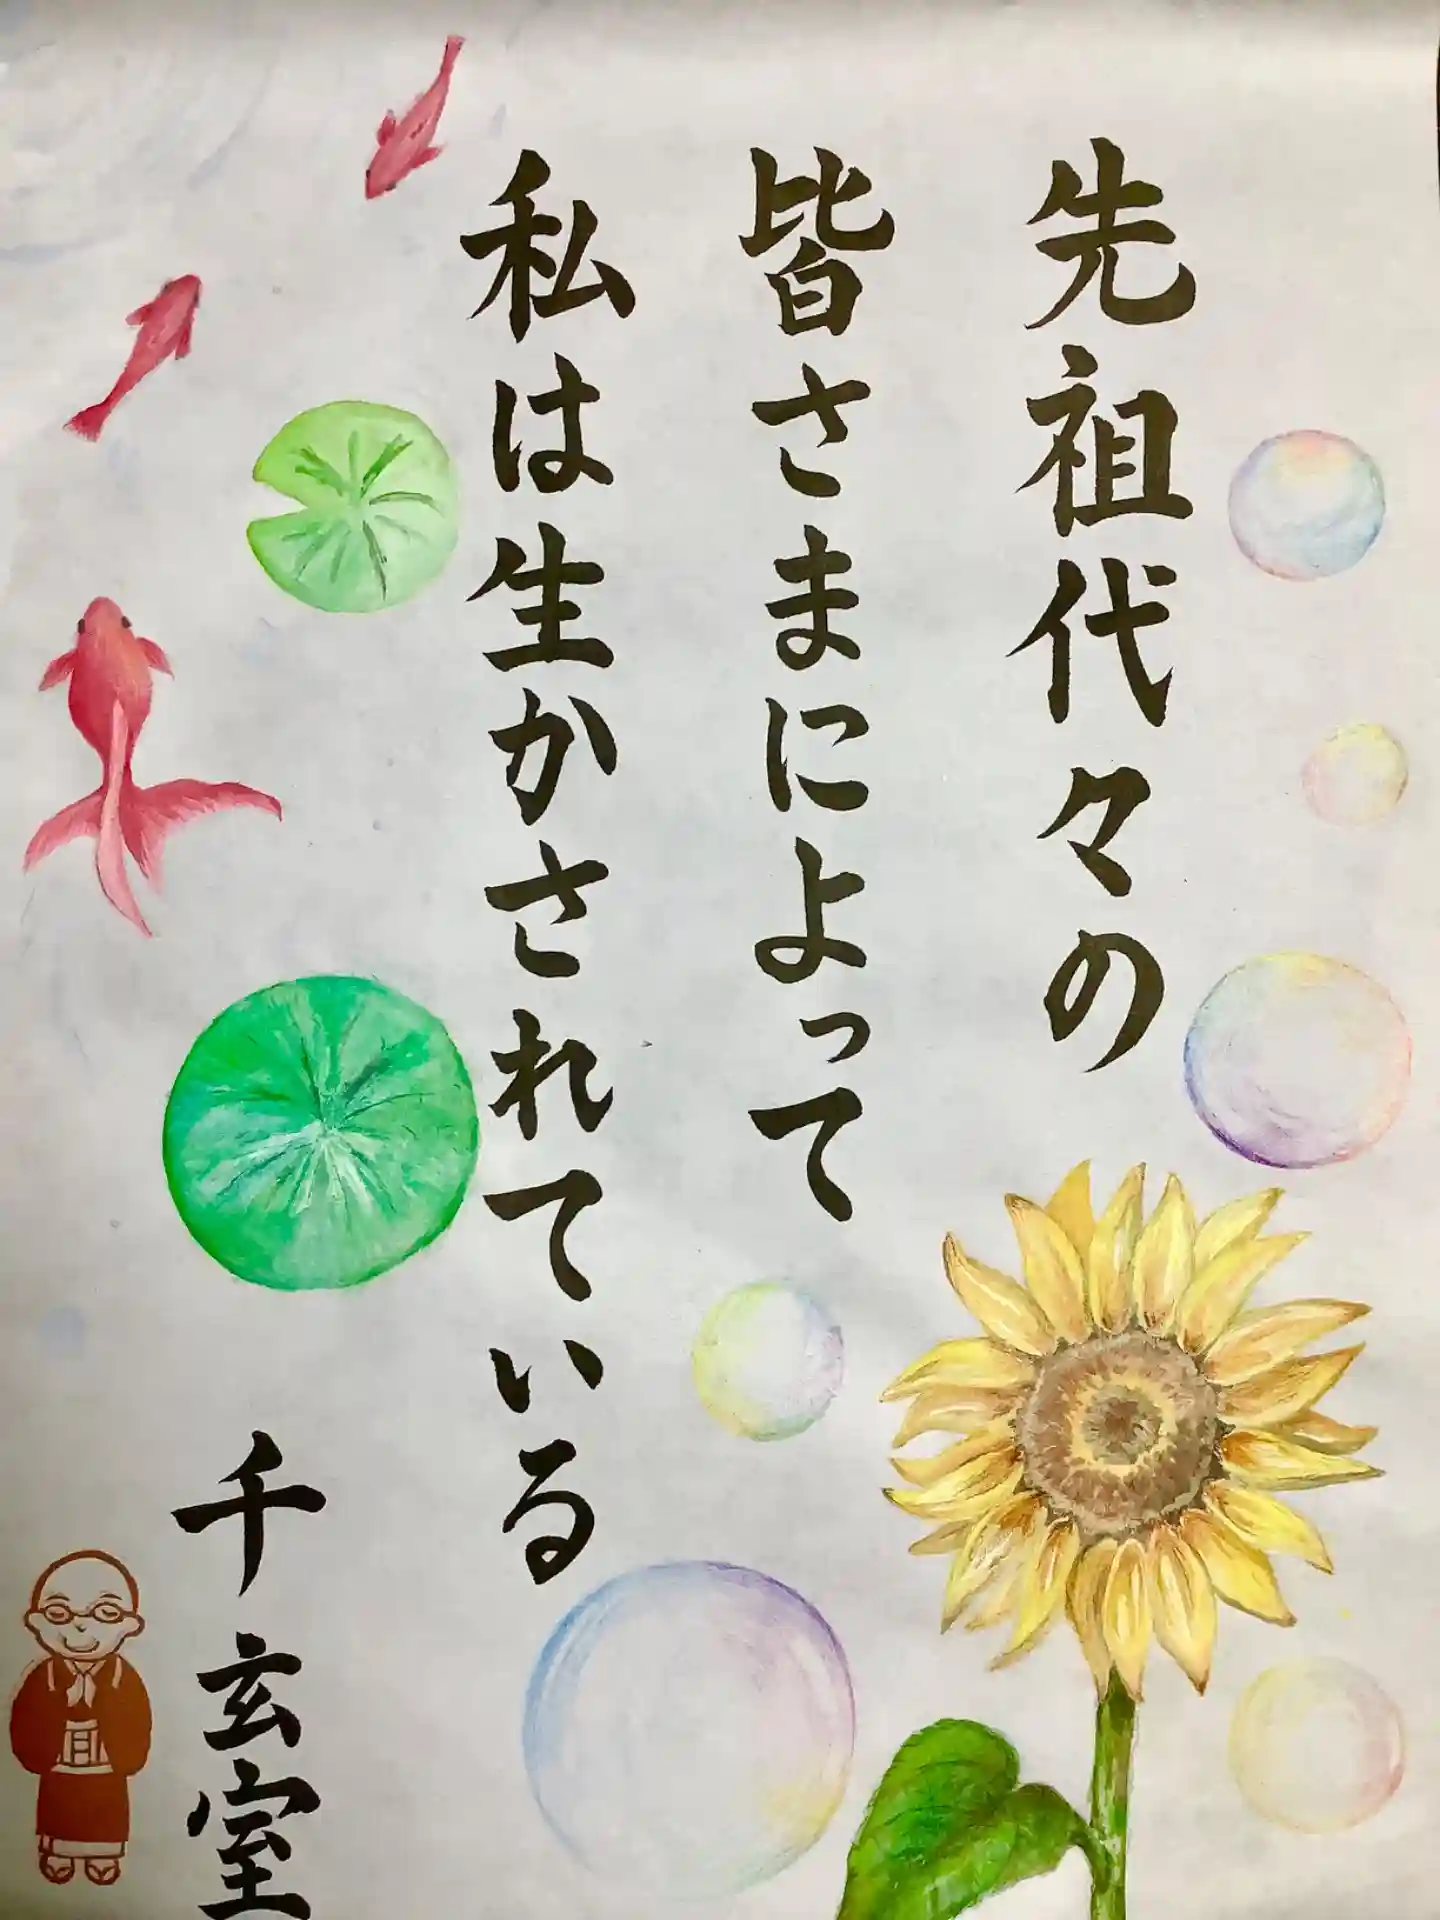 先祖代々の
皆さまによって
私は生かされている
千玄室